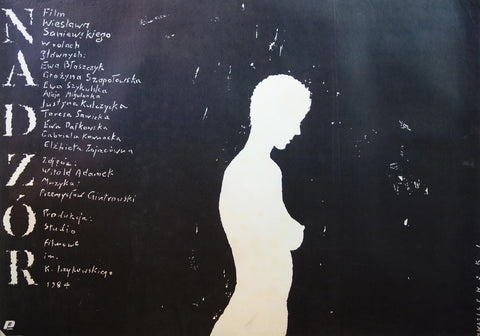 NADZÓR
Film
Wiesława
Saniewskiego
w rolach
głównych:
Ewa Błaszczyk
Grażyna Szapołowska
Ewa Szykulska
Alicja Migulanka
Justyna Kulczycka
Teresa Sawicka
Ewa Dałkowska
Gabriela Kownacka
Elżbieta Zającówna
Zdjęcia:
Witold Adamek
Muzyka:
Przemysław Gintrowski
Produkcja:
Studio
Filmowe
im.
K. Irzykowskiego
1984